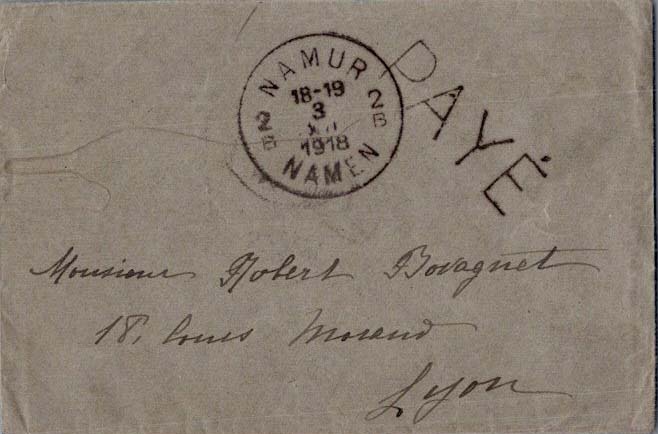 NAMUR
18-19
3
XII
1918
NAMEN
2B
2B
PAYÉ
Monsieur Robert Bovagnet
18, Cours Morand
Lyon